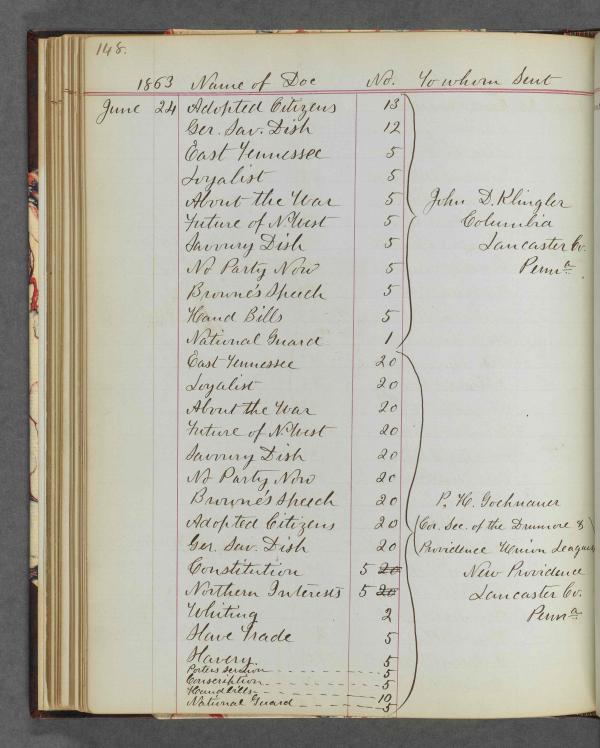 148.
1863 Name of Doc No. To whom Sent
June 24 Adopted Citizens 13
Ger. Sav. Dish 12
East Tennessee 5
Loyalist 5
About the War 5 John D. Klingler
Future of N. West 5 Columbia
Savoury Dish 5 Lancaster Co.
No Party Now 5 Penna
Browne's Speech 5
Hand Bills 5
National Guard 1
East Tennessee 20
Loyalist 20
About the War 20
Future of N. West 20
Savoury Dish 20
No Party Now 20
Browne's Speech 20 P. H. Gochnauer
Adopted Citizens 20 (Cor. Sec. of the Drumore &
Ger. Sav. Dish 20 Providence Union Leagues)
Constitution 5 20 New Providence
Northern Interests 5 20 Lancaster Co.
Whiting 2 Penna
Slave Trade 5
Slavery 5
Porters Sermon 5
Conscription 5
Hand bills 10
National Guard 5